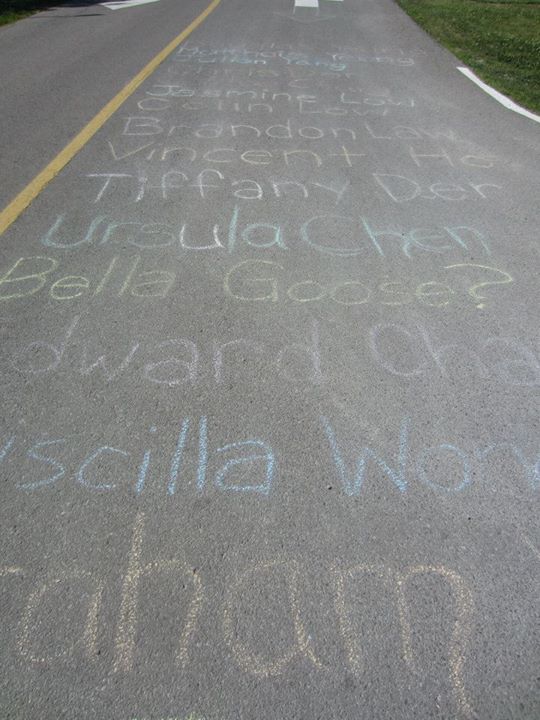 Jasmine Low
Colin Low
Brandon Law
Vincent Ho
Tiffany Der
Ursula Chen
Bella Goose?
dward Cha
iscilla Won
raham